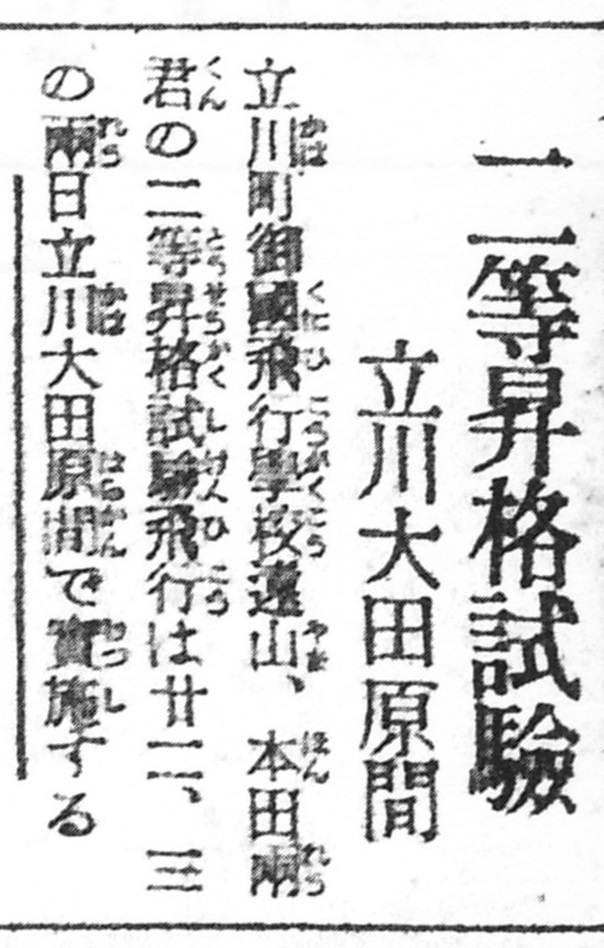 二等昇格試驗
立川大田原間
立川町御國飛行學校遠山、本田兩
君の二等昇格試驗飛行は廿二、三
の兩日立川大田原間で實施する